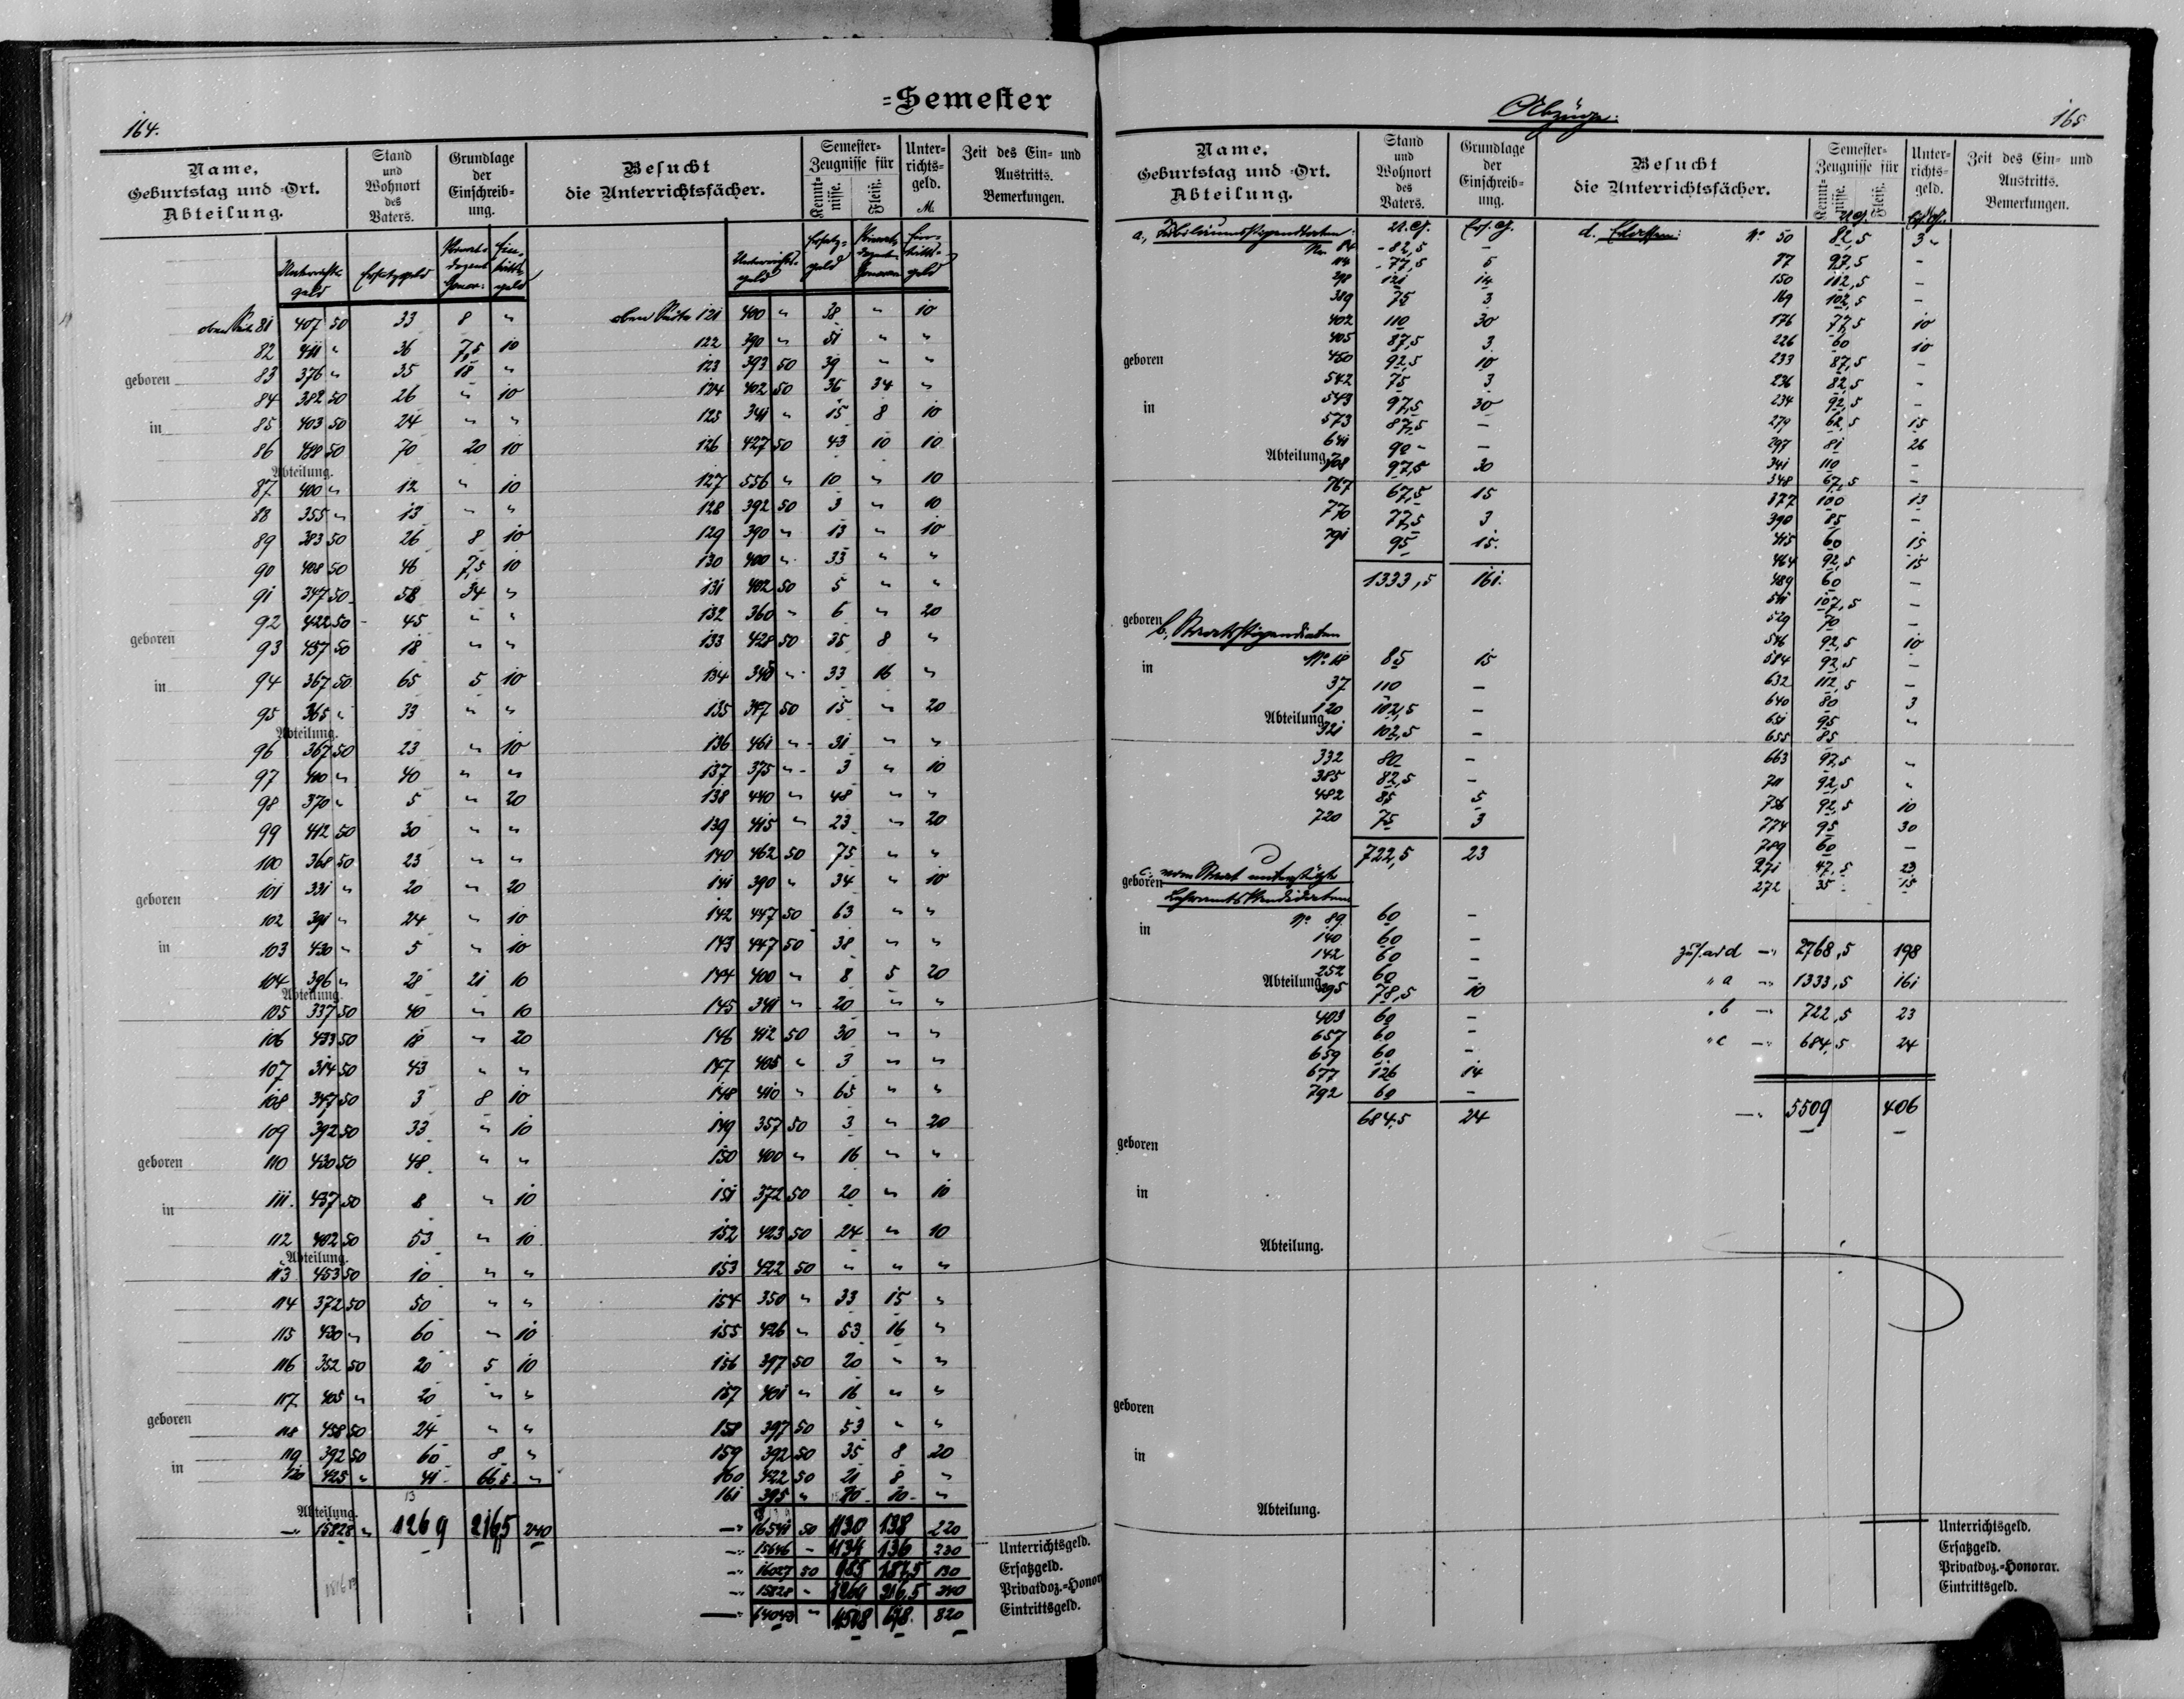 =Semester
164.
Name,
Geburtstag und =Ort.
Abteilung.
Stand
und
Wohnort
des
Vaters.
Grundlage
der
Einschreib-
ung.
Besucht
die Unterrichtsfächer.
Semester=
Zeugnisse für
Kennt-
nisse.
Fleiß.
Unter-
richts-
geld.
M.
Zeit des Ein- und
Austritts.
Bemerkungen.
Unterrichts-
geld
Ersatzgeld
Privat-
dozent
Honor.
Ein-
tritts-
geld
Unterrichts-
geld
Ersatz-
geld
Privat-
dozenten
Honorar
Ein-
tritts-
geld
81 407 50 33 8 "
82 411 " 36 7,5 10
83 376 " 35 18 "
geboren
84 382 50 26 " 10
85 403 50 24 " "
in
86 488 50 70 20 10
Abteilung.
87 400 " 12 " 10
88 355 " 13 " "
89 383 50 26 8 10
90 408 50 46 7,5 10
91 347 50 58 34 "
92 422 50 45 " "
geboren
93 457 50 18 " "
94 367 50 65 5 10
in
95 365 " 33 " "
Abteilung.
96 367 50 23 " 10
97 400 " 40 " "
98 370 " 5 " 20
99 412 50 30 " "
100 368 50 23 " "
101 331 " 20 " 20
geboren
102 391 " 24 " 10
103 430 " 5 " 10
in
104 396 " 28 21 10
Abteilung.
105 337 50 40 " 10
106 433 50 18 " 20
107 314 50 43 " "
108 347 50 3 8 10
109 392 50 33 " 10
110 430 50 48 " "
geboren
111. 437 50 8 " 10
in
112 402 50 53 " 10
Abteilung.
113 453 50 10 " "
114 372 50 50 " "
115 430 " 60 " 10
116 352 50 20 5 10
117 405 " 20 " "
geboren
118 458 50 24 " "
119 392 50 60 8 "
in
120 425 " 41 66,5 "
Abteilung.
15828 " 1269 216,5 240
121 400 " 38 " 10
122 390 " 51 " "
123 393 50 39 " "
124 402 50 36 34 "
125 341 " 15 8 10
126 427 50 43 10 10
127 556 " 10 " 10
128 392 50 3 " 10
129 390 " 13 " 10
130 400 " 33 " "
131 402 50 5 " "
132 360 " 6 " 20
133 428 50 35 8 "
134 340 " 33 16 "
135 347 50 15 " 20
136 461 " 31 " "
137 375 " 3 " 10
138 440 " 48 " "
139 415 " 23 " 20
140 462 50 75 " "
141 390 " 34 " 10
142 447 50 63 " "
143 447 50 38 " "
144 400 " 8 5 20
145 341 " 20 " "
146 412 50 30 " "
147 405 " 3 " "
148 410 " 65 " "
149 357 50 3 " 20
150 400 " 16 " "
151 372 50 20 " 10
152 423 50 24 " 10
153 422 50 " " "
154 350 " 33 15 "
155 426 " 53 16 "
156 397 50 20 " "
157 401 " 16 " "
158 397 50 53 " "
159 392 50 35 8 20
160 422 50 21 8 "
161 395 "
16541 50 1130 138 220
15646 - 1134 136 230
16027 50 985 187,5 130
15828 " 1269 216,5 240
64043 " 4518 678 820
Unterrichtsgeld.
Ersatzgeld.
Privatdoz.=Honor
Eintrittsgeld.
Abzüge.
165
Name,
Geburtstag und =Ort.
Abteilung.
Stand
und
Wohnort
des
Vaters.
Grundlage
der
Einschreib-
ung.
Besucht
die Unterrichtsfächer.
Semester=
Zeugnisse für
Kennt-
nisse.
Fleiß.
Unter-
richts-
geld.
Zeit des Ein- und
Austritts.
Bemerkungen.
a, Jubiläumsstipendiaten: U.G. Ers.G.
No 84 82,5 -
114 77,5 5
298 121 14
389 75 3
402 110 30
405 87,5 3
geboren
450 92,5 10
542 75 3
in
543 97,5 30
573 87,5 -
641 90 -
Abteilung.
708 97,5 30
767 67,5 15
770 77,5 3
791 95 15.
1333,5 161.
geboren
b, Staatsstipendiaten
in
No 18 85 15
37 110 -
120 102,5 -
Abteilung
321 102,5 -
332 80 -
385 82,5 -
482 85 5
720 75 3
722,5 23
c. vom Staat unterstützte
geboren
Lehramtskandidaten
in
No 89 60 -
140 60 -
142 60 -
252 60 -
Abteilung
295 78,5 10
403 60 -
657 60 -
659 60 -
677 126 14
792 60 -
684,5 24
geboren
in
Abteilung.
geboren
in
Abteilung.
d. No 50 82,5 3 "
77 97,5 -
150 112,5 -
169 102,5 -
176 77,5 10
226 60 10
233 87,5 -
236 82,5 -
234 92,5 -
279 62,5 15
297 81 26
341 110 -
348 67,5 -
377 100 13
390 85 -
415 60 15
464 92,5 15
489 60 -
511 107,5 -
529 70 -
546 92,5 10
584 92,5 -
632 112,5 -
640 80 3
651 95 "
655 85
663 97,5 "
711 92,5 "
756 92,5 10
774 95 30
789 60 -
271 47,5 23
272 35 15
d 2768,5 198
" a 1333,5 161
" b 722,5 23
" c 684,5 24
5509 406
Unterrichtsgeld.
Ersatzgeld.
Privatdoz.=Honorar.
Eintrittsgeld.